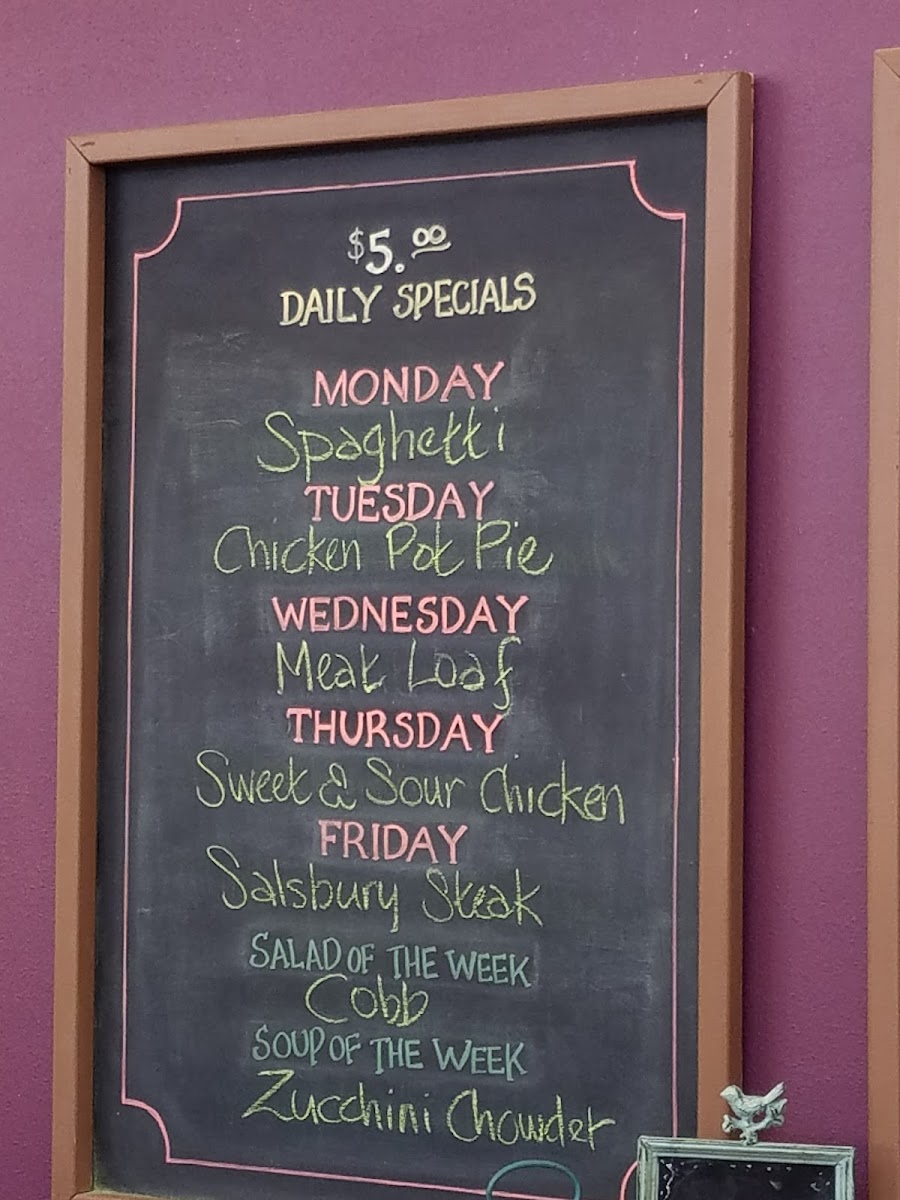 $5.00
DAILY SPECIALS
MONDAY
Spaghetti
TUESDAY
Chicken Pot Pie
WEDNESDAY
Meat Loaf
THURSDAY
Sweet & Sour Chicken
FRIDAY
Salsbury Steak
SALAD OF THE WEEK
Cobb
SOUP OF THE WEEK
Zucchini Chowder